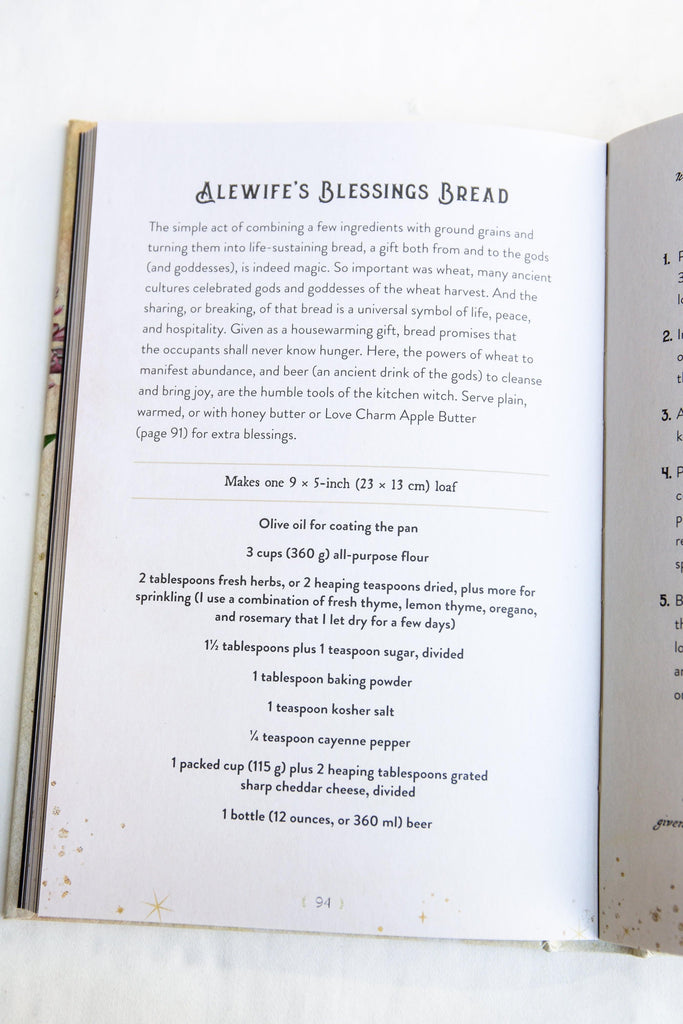 Alewife's Blessings Bread
The simple act of combining a few ingredients with ground grains and
turning them into life-sustaining bread, a gift both from and to the gods
(and goddesses), is indeed magic. So important was wheat, many ancient
cultures celebrated gods and goddesses of the wheat harvest. And the
sharing, or breaking, of that bread is a universal symbol of life, peace,
and hospitality. Given as a housewarming gift, bread promises that
the occupants shall never know hunger. Here, the powers of wheat to
manifest abundance, and beer (an ancient drink of the gods) to cleanse
and bring joy, are the humble tools of the kitchen witch. Serve plain,
warmed, or with honey butter or Love Charm Apple Butter
(page 91) for extra blessings.
Makes one 9 × 5-inch (23 × 13 cm) loaf
Olive oil for coating the pan
3 cups (360 g) all-purpose flour
2 tablespoons fresh herbs, or 2 heaping teaspoons dried, plus more for
sprinkling (I use a combination of fresh thyme, lemon thyme, oregano,
and rosemary that I let dry for a few days)
1½ tablespoons plus 1 teaspoon sugar, divided
1 tablespoon baking powder
1 teaspoon kosher salt
¼ teaspoon cayenne pepper
1 packed cup (115 g) plus 2 heaping tablespoons grated
sharp cheddar cheese, divided
1 bottle (12 ounces, or 360 ml) beer
{ 94 }
1.
2.
3.
4.
5.